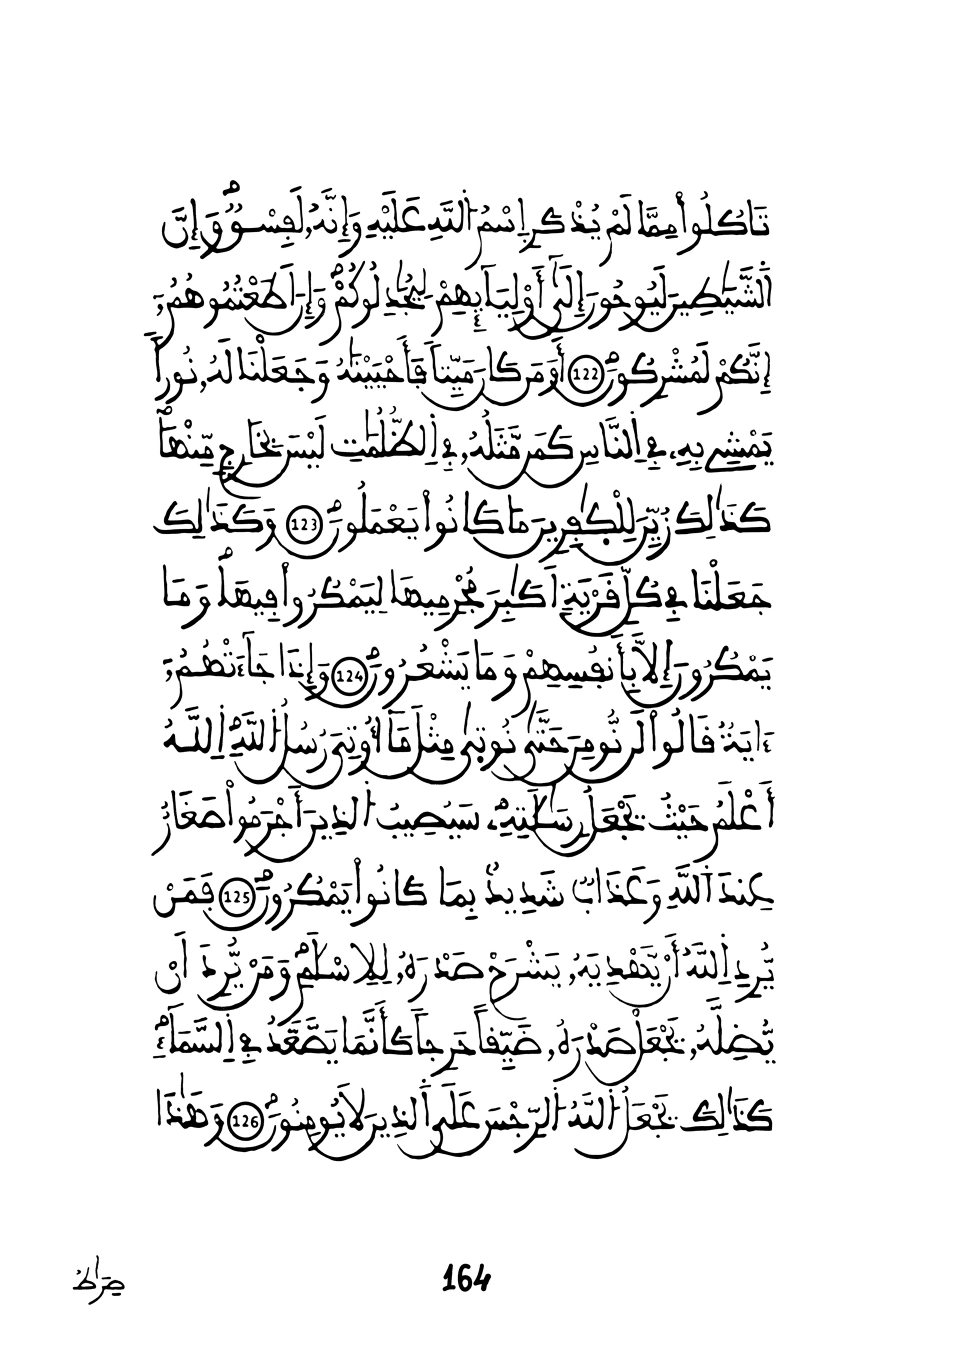 تَاكُلُواْ مِمَّا لَمْ يُذْكَرِ اِ۪سْمُ اُ۬للَّهِ عَلَيْهِ وَإِنَّهُۥ لَفِسْقٞۖ وَإِنَّ
اَ۬لشَّيَٰطِينَ لَيُوحُونَ إِلَىٰٓ أَوْلِيَآئِهِمْ لِيُجَٰدِلُوكُمْۖ وَإِنَ اَطَعْتُمُوهُمُۥٓ
إِنَّكُمْ لَمُشْرِكُونَۖ 122 أَوَمَن كَانَ مَيِّتاٗ فَأَحْيَيْنَٰهُ وَجَعَلْنَا لَهُۥ نُوراٗ
يَمْشِے بِهِۦ فِے اِ۬لنَّاسِ كَمَن مَّثَلُهُۥ فِے اِ۬لظُّلُمَٰتِ لَيْسَ بِخَارِجٖ مِّنْهَاۖ
كَذَٰلِكَ زُيِّنَ لِلْكٰ۪فِرِينَ مَا كَانُواْ يَعْمَلُونَۖ 123 وَكَذَٰلِكَ
جَعَلْنَا فِے كُلِّ قَرْيَةٍ اَكَٰبِرَ مُجْرِمِيهَا لِيَمْكُرُواْ فِيهَاۖ وَمَا
يَمْكُرُونَ إِلَّا بِأَنفُسِهِمْ وَمَا يَشْعُرُونَۖ 124 وَإِذَا جَآءَتْهُمُۥٓ
ءَايَةٞ قَالُواْ لَن نُّومِنَ حَتَّىٰ نُوتَىٰ مِثْلَ مَآ أُوتِيَ رُسُلُ اُ۬للَّهِۖ اِ۬للَّهُ
أَعْلَمُ حَيْثُ يَجْعَلُ رِسَٰلَٰتِهِۦۖ سَيُصِيبُ اُ۬لذِينَ أَجْرَمُواْ صَغَارٌ
عِندَ اَ۬للَّهِ وَعَذَابٞ شَدِيدُۢ بِمَا كَانُواْ يَمْكُرُونَۖ 125 فَمَنْ
يُّرِدِ اِ۬للَّهُ أَنْ يَّهْدِيَهُۥ يَشْرَحْ صَدْرَهُۥ لِلِاسْلَٰمِۖ وَمَنْ يُّرِدَ اَنْ
يُّضِلَّهُۥ يَجْعَلْ صَدْرَهُۥ ضَيِّقاً حَرِجاٗ كَأَنَّمَا يَصَّعَّدُ فِے اِ۬لسَّمَآءِۖ
كَذَٰلِكَ يَجْعَلُ اُ۬للَّهُ اُ۬لرِّجْسَ عَلَى اَ۬لذِينَ لَا يُومِنُونَۖ 126 وَهَٰذَا
صِرَٰطُ
164